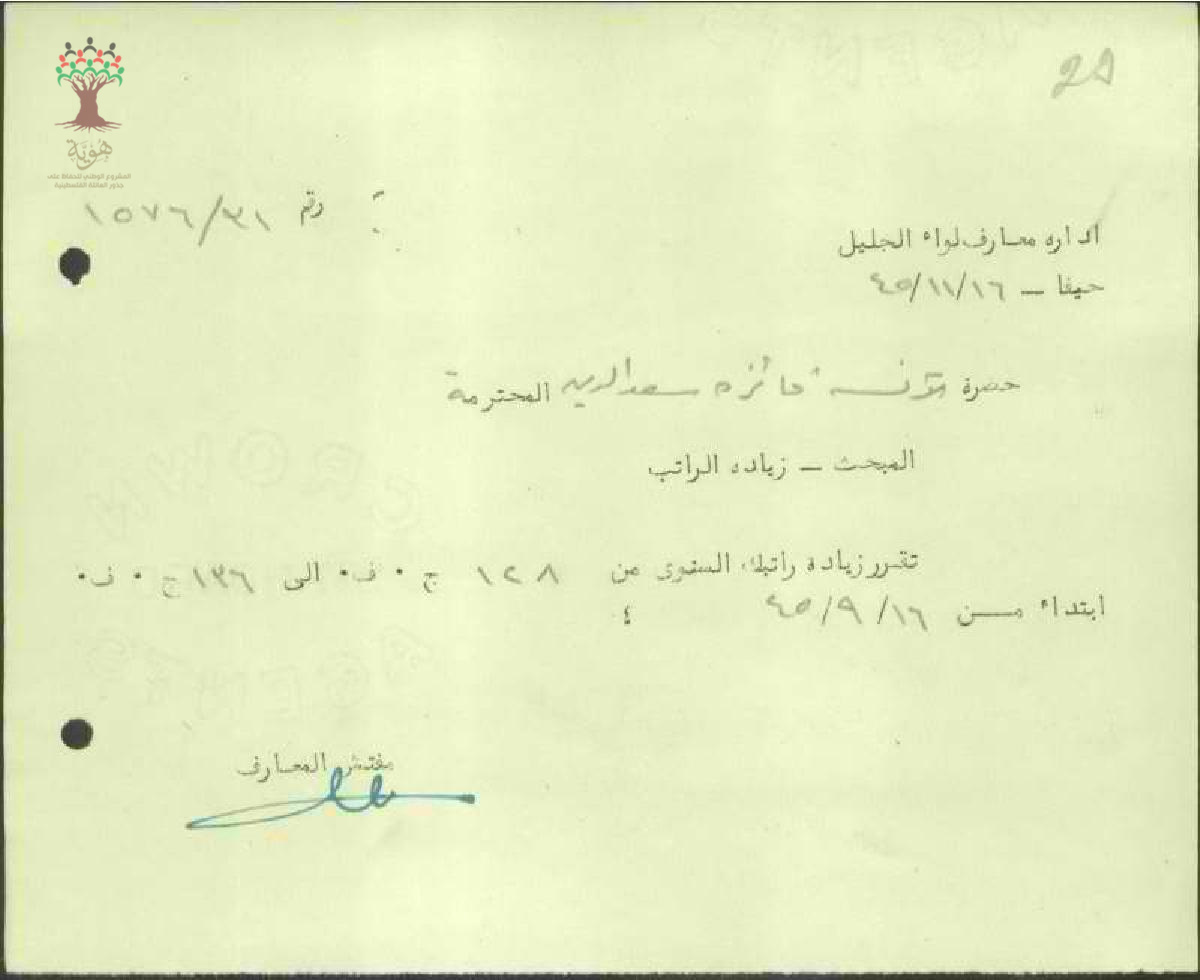 29
هُوِيَّة
المشروع الوطني للحفاظ على
جذور العائلة الفلسطينية
رقم ٣١/١٥٧٦
اداره معارف لواء الجليل
حيفا – ٤٥/١١/١٦
حضرة الآنسه فائزه سعد الدين المحترمة
المبحث – زياده الراتب
تقرر زياده راتبك السنوى من ١٢٨ ج ٠ ف٠ الى ١٣٦ ج ٠ ف٠
ابتداء مــن ٤٥/٩/١٦ ؛
مفتش المعارف
CROWN
AGENTS